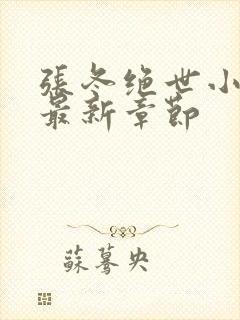 張冬绝世小
最新章節
蘇蓦央